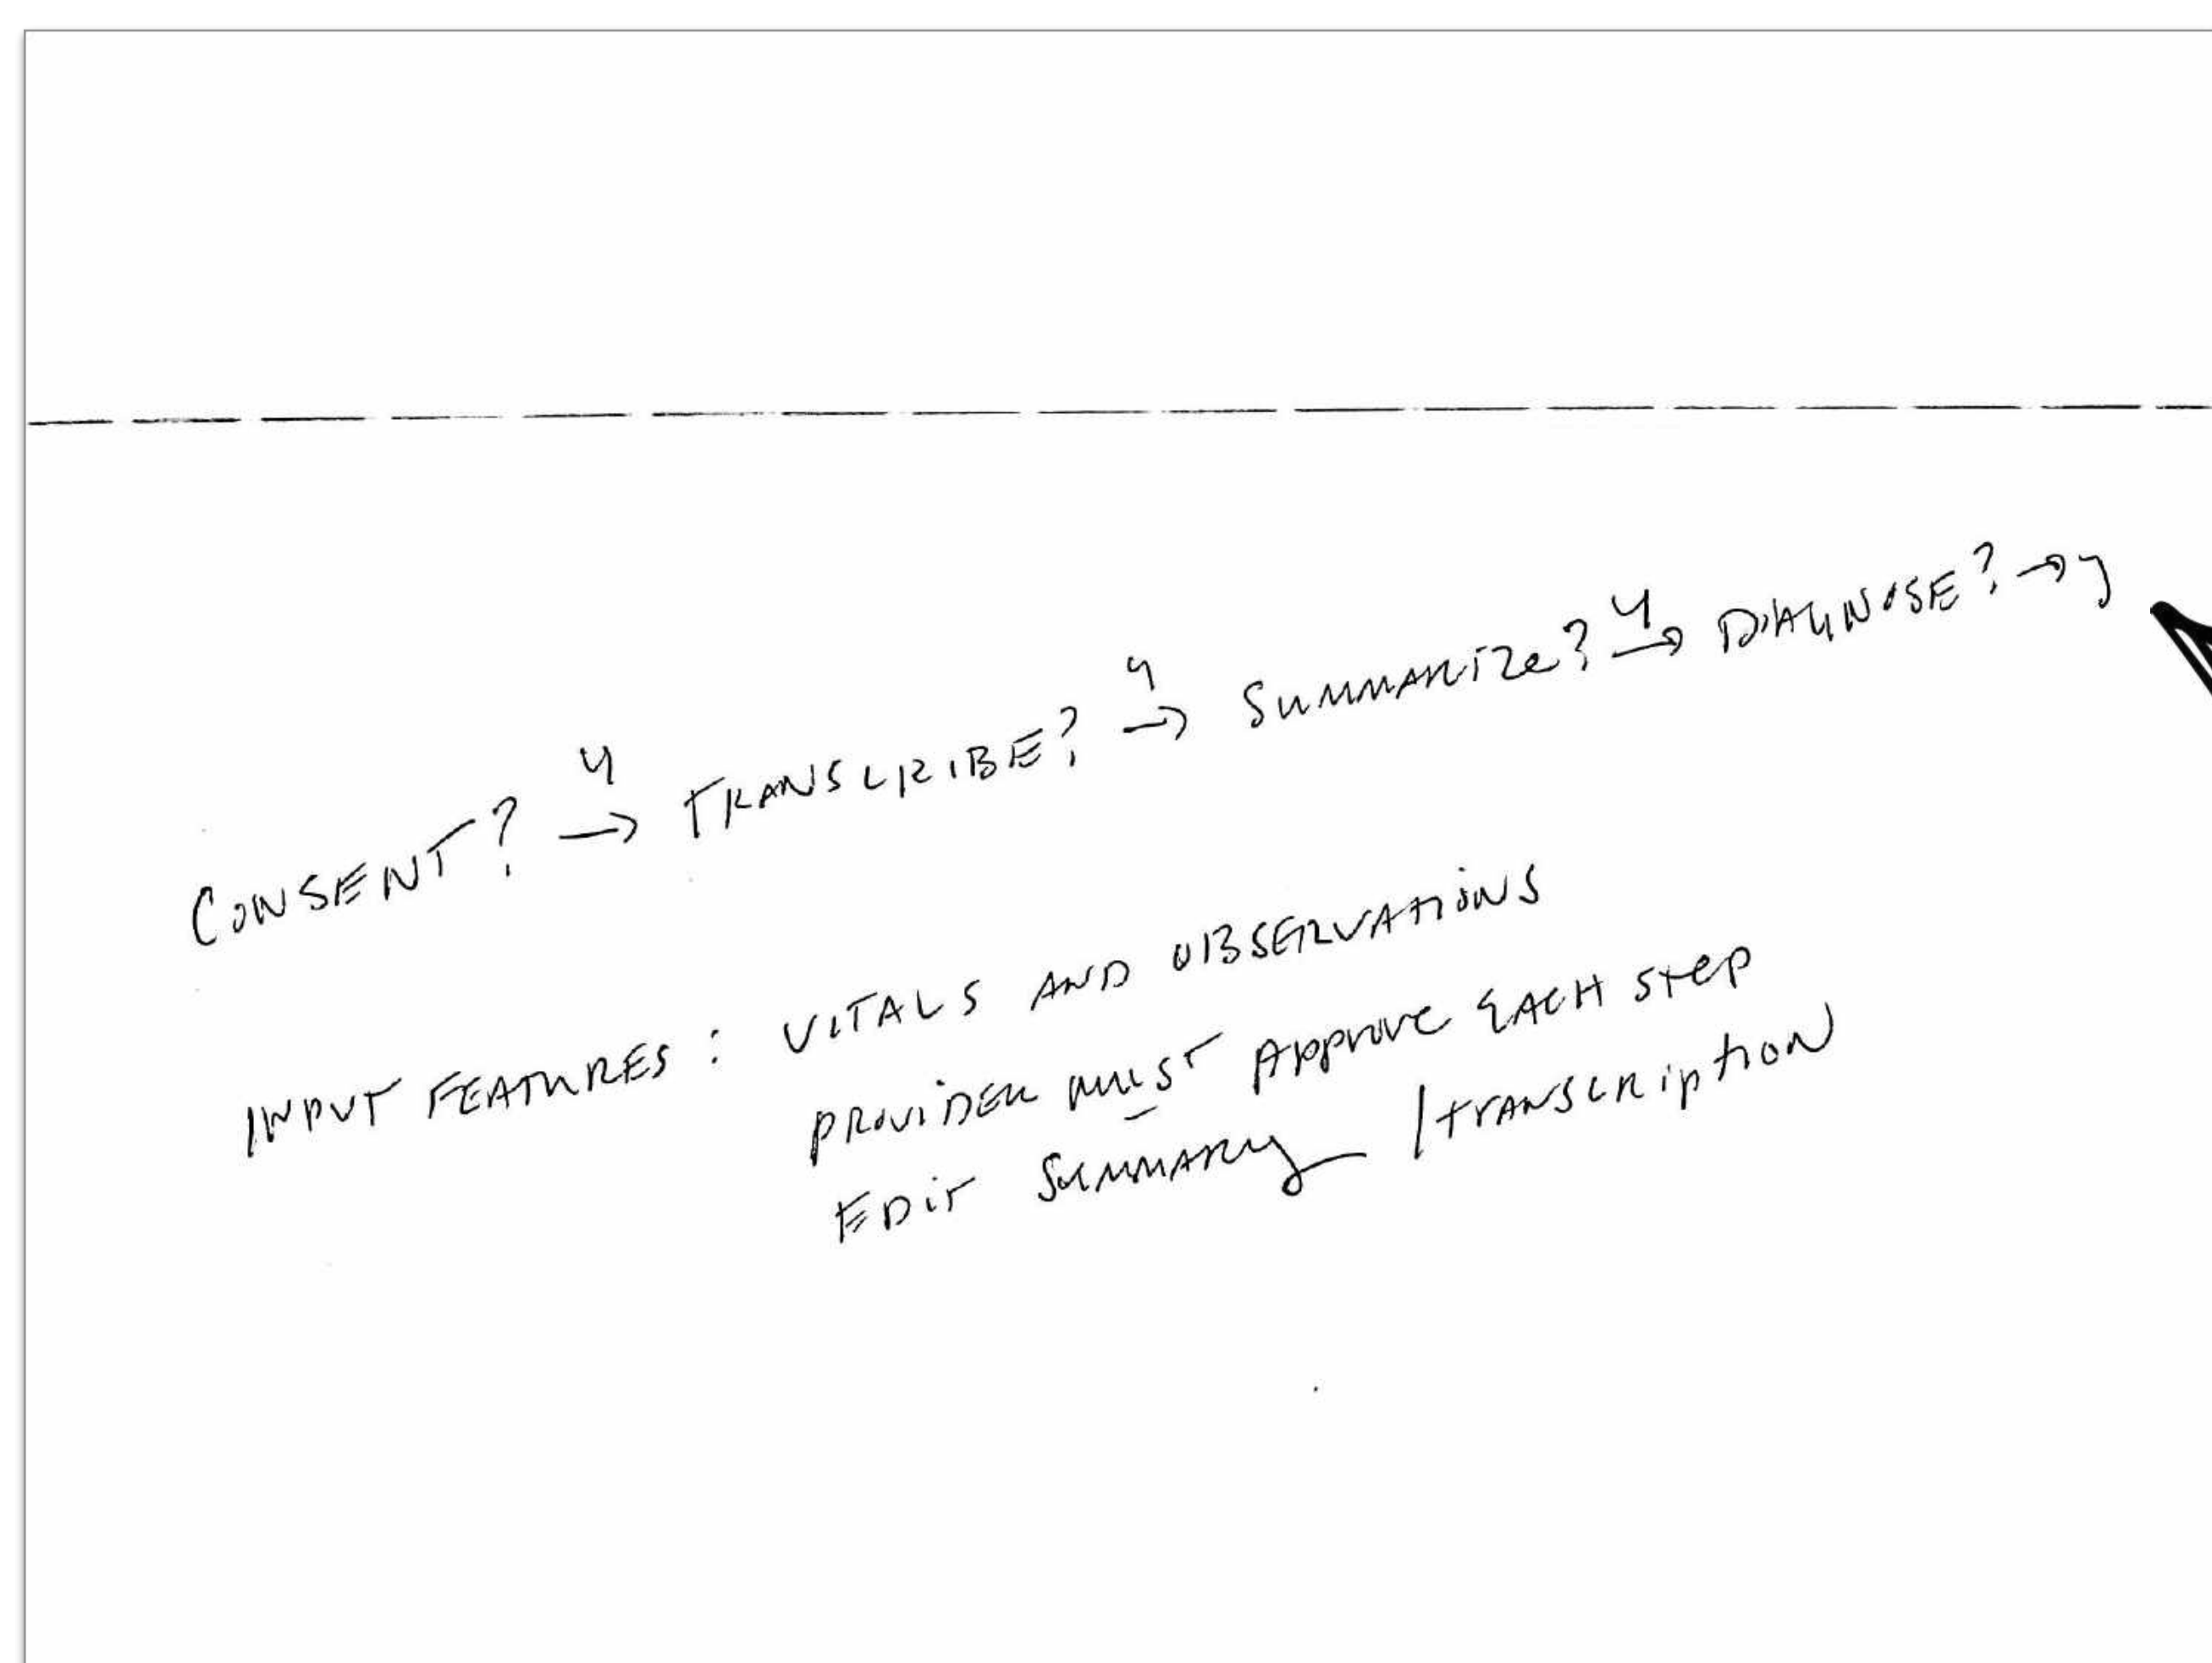 CONSENT? y → TRANSCRIBE? y → Summarize? y → DIAGNOSE? → y
INPUT FEATURES: VITALS AND OBSERVATIONS
PROVIDER MUST Approve EACH step
EDIT SUMMARY / transcription